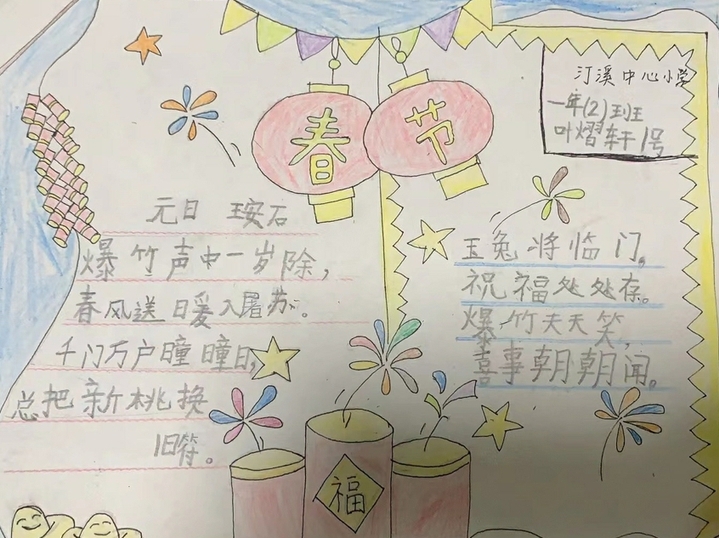 春节
汀溪中心小学
一年(2)班
叶熠轩 1号
元日 王安石
爆竹声中一岁除，
春风送日暖入屠苏。
千门万户曈曈日，
总把新桃换
旧符。
玉兔将临门，
祝福处处存。
爆竹天天笑，
喜事朝朝闻。
福